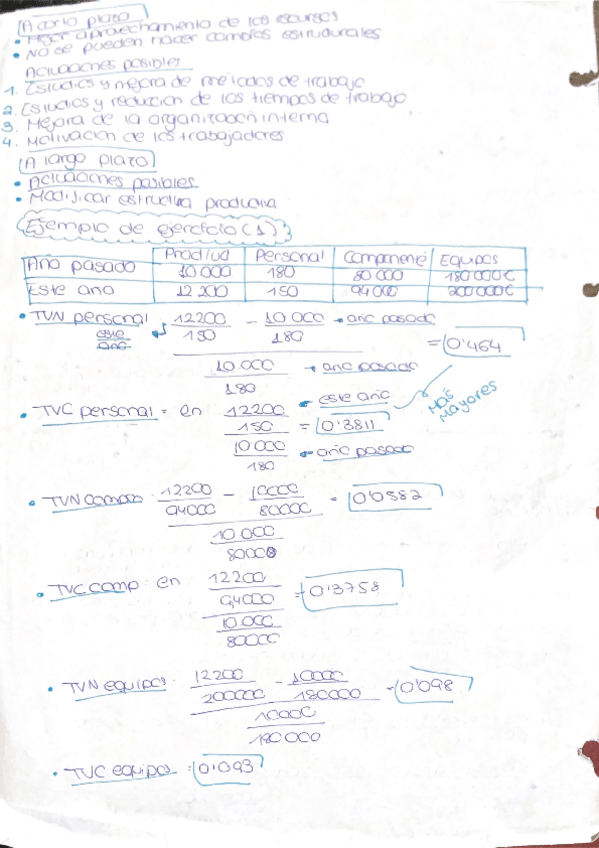 A corto plazo
• Mejor aprovechamiento de los recursos
• No se pueden hacer cambios estructurales
Actuaciones posibles
1. Estudios y mejora de métodos de trabajo
2. Estudios y reducción de los tiempos de trabajo
3. Mejora de la organización interna
4. Motivación de los trabajadores
A largo plazo
• Actuaciones posibles
• Modificar estructura productiva
Ejemplo de ejercicio (1)
Personal Equipos
Año pasado 10 000 180 80 000 180 000€
Este año 12 200 150 94 000 200 000€
• TVN personal 12200/150 - 10 000/180 → año pasado
este año
= 0'464
10.000/180 → año pasado
• TVC personal = en 12200/150 ← este año
= 0'3811
Más Mayores
10 000/180 ← año pasado
• TVN compon 12200/94000 - 10000/80000 = 0'0382
10.000/80000
• TVC comp: en 12200/94000 = 0'3758
10.000/80000
• TVN equipos: 12200/200000 - 10000/180000 = 0'098
10000/180000
• TVC equipos = 0'093